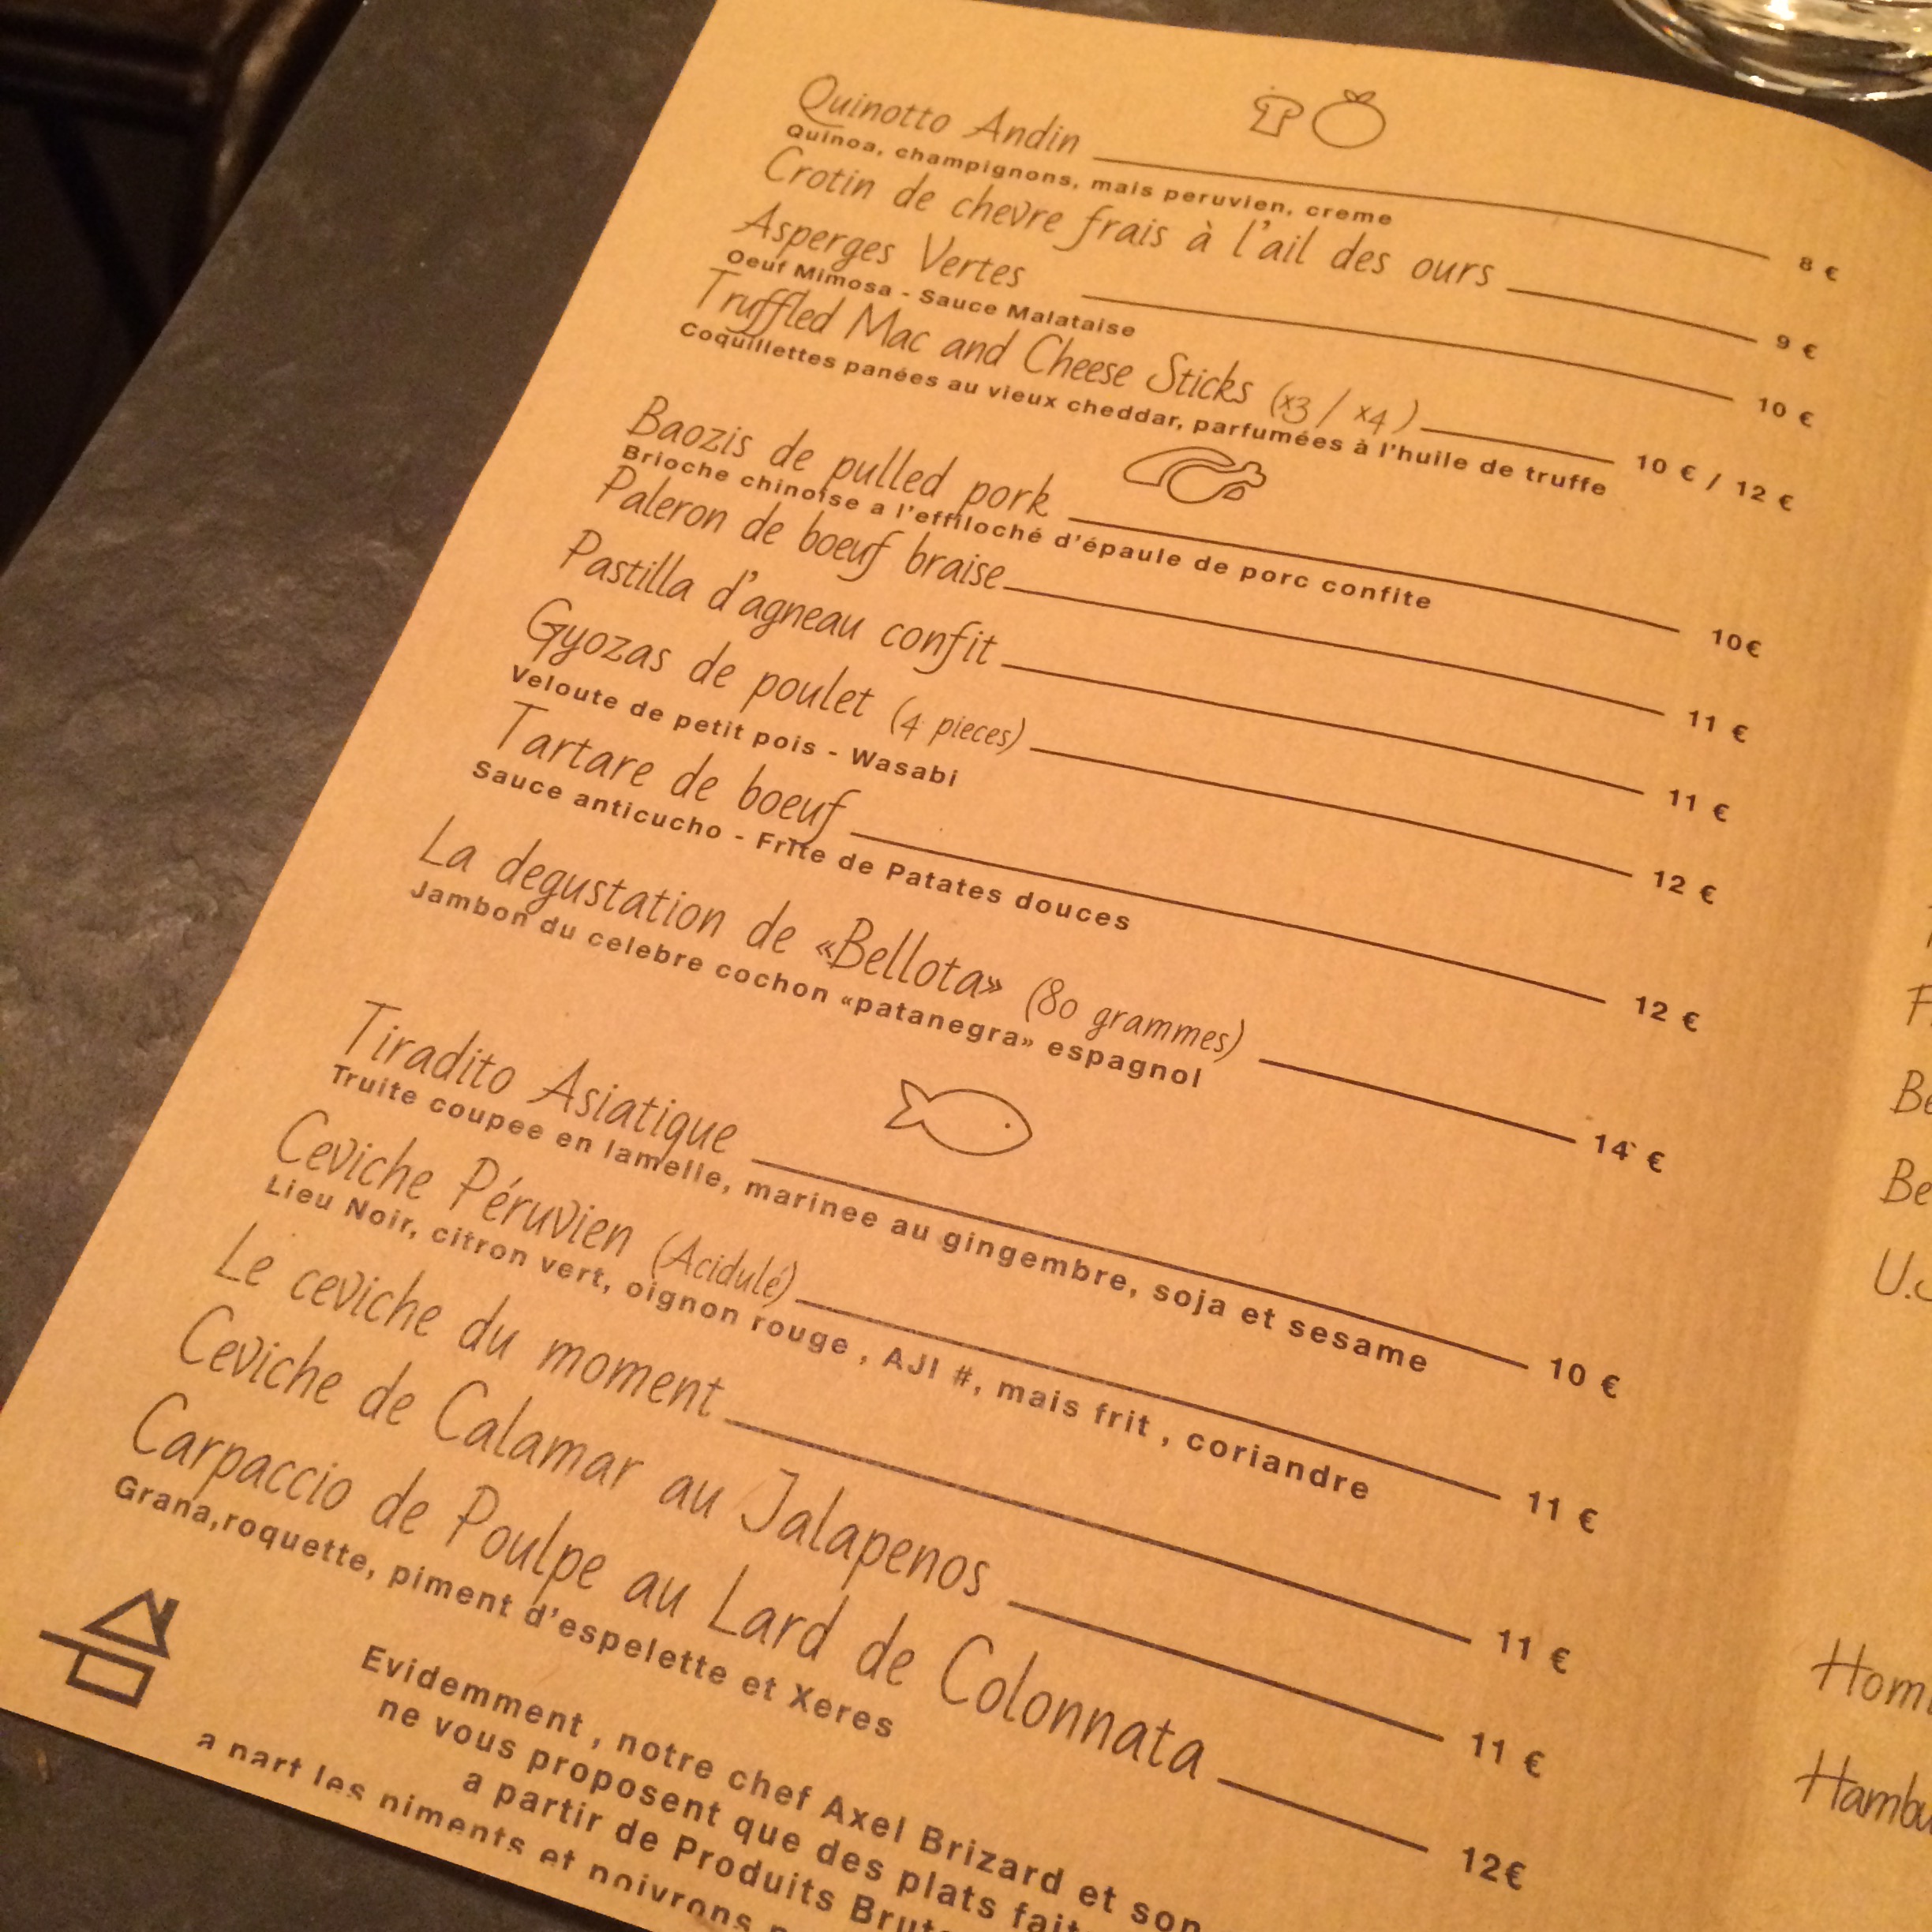 Quinotto Andin 8 €
Quinoa, champignons, mais peruvien, creme
Crotin de chevre frais à l'ail des ours 9 €
Asperges Vertes 10 €
Oeuf Mimosa - Sauce Malataise
Truffled Mac and Cheese Sticks (x3 / x4 ) 10 € / 12 €
Coquillettes panées au vieux cheddar, parfumées à l'huile de truffe
Baozis de pulled pork 10€
Brioche chinoise a l'effiloché d'épaule de porc confite
Paleron de boeuf braise 11 €
Pastilla d'agneau confit 11 €
Gyozas de poulet (4 pieces) 12 €
Veloute de petit pois - Wasabi
Tartare de boeuf 12 €
Sauce anticucho - Frite de Patates douces
La degustation de «Bellota» (80 grammes) 14 €
Jambon du celebre cochon «patanegra» espagnol
Tiradito Asiatique 10 €
Truite coupee en lamelle, marinee au gingembre, soja et sesame
Ceviche Péruvien (Acidulé) 11 €
Lieu Noir, citron vert, oignon rouge , AJI #, mais frit , coriandre
Le ceviche du moment 11 €
Ceviche de Calamar au Jalapenos 11 €
Carpaccio de Poulpe au Lard de Colonnata 12€
Grana,roquette, piment d'espelette et Xeres
Evidemment , notre chef Axel Brizard et son
ne vous proposent que des plats
a partir de Produits
a part les piments et poivrons